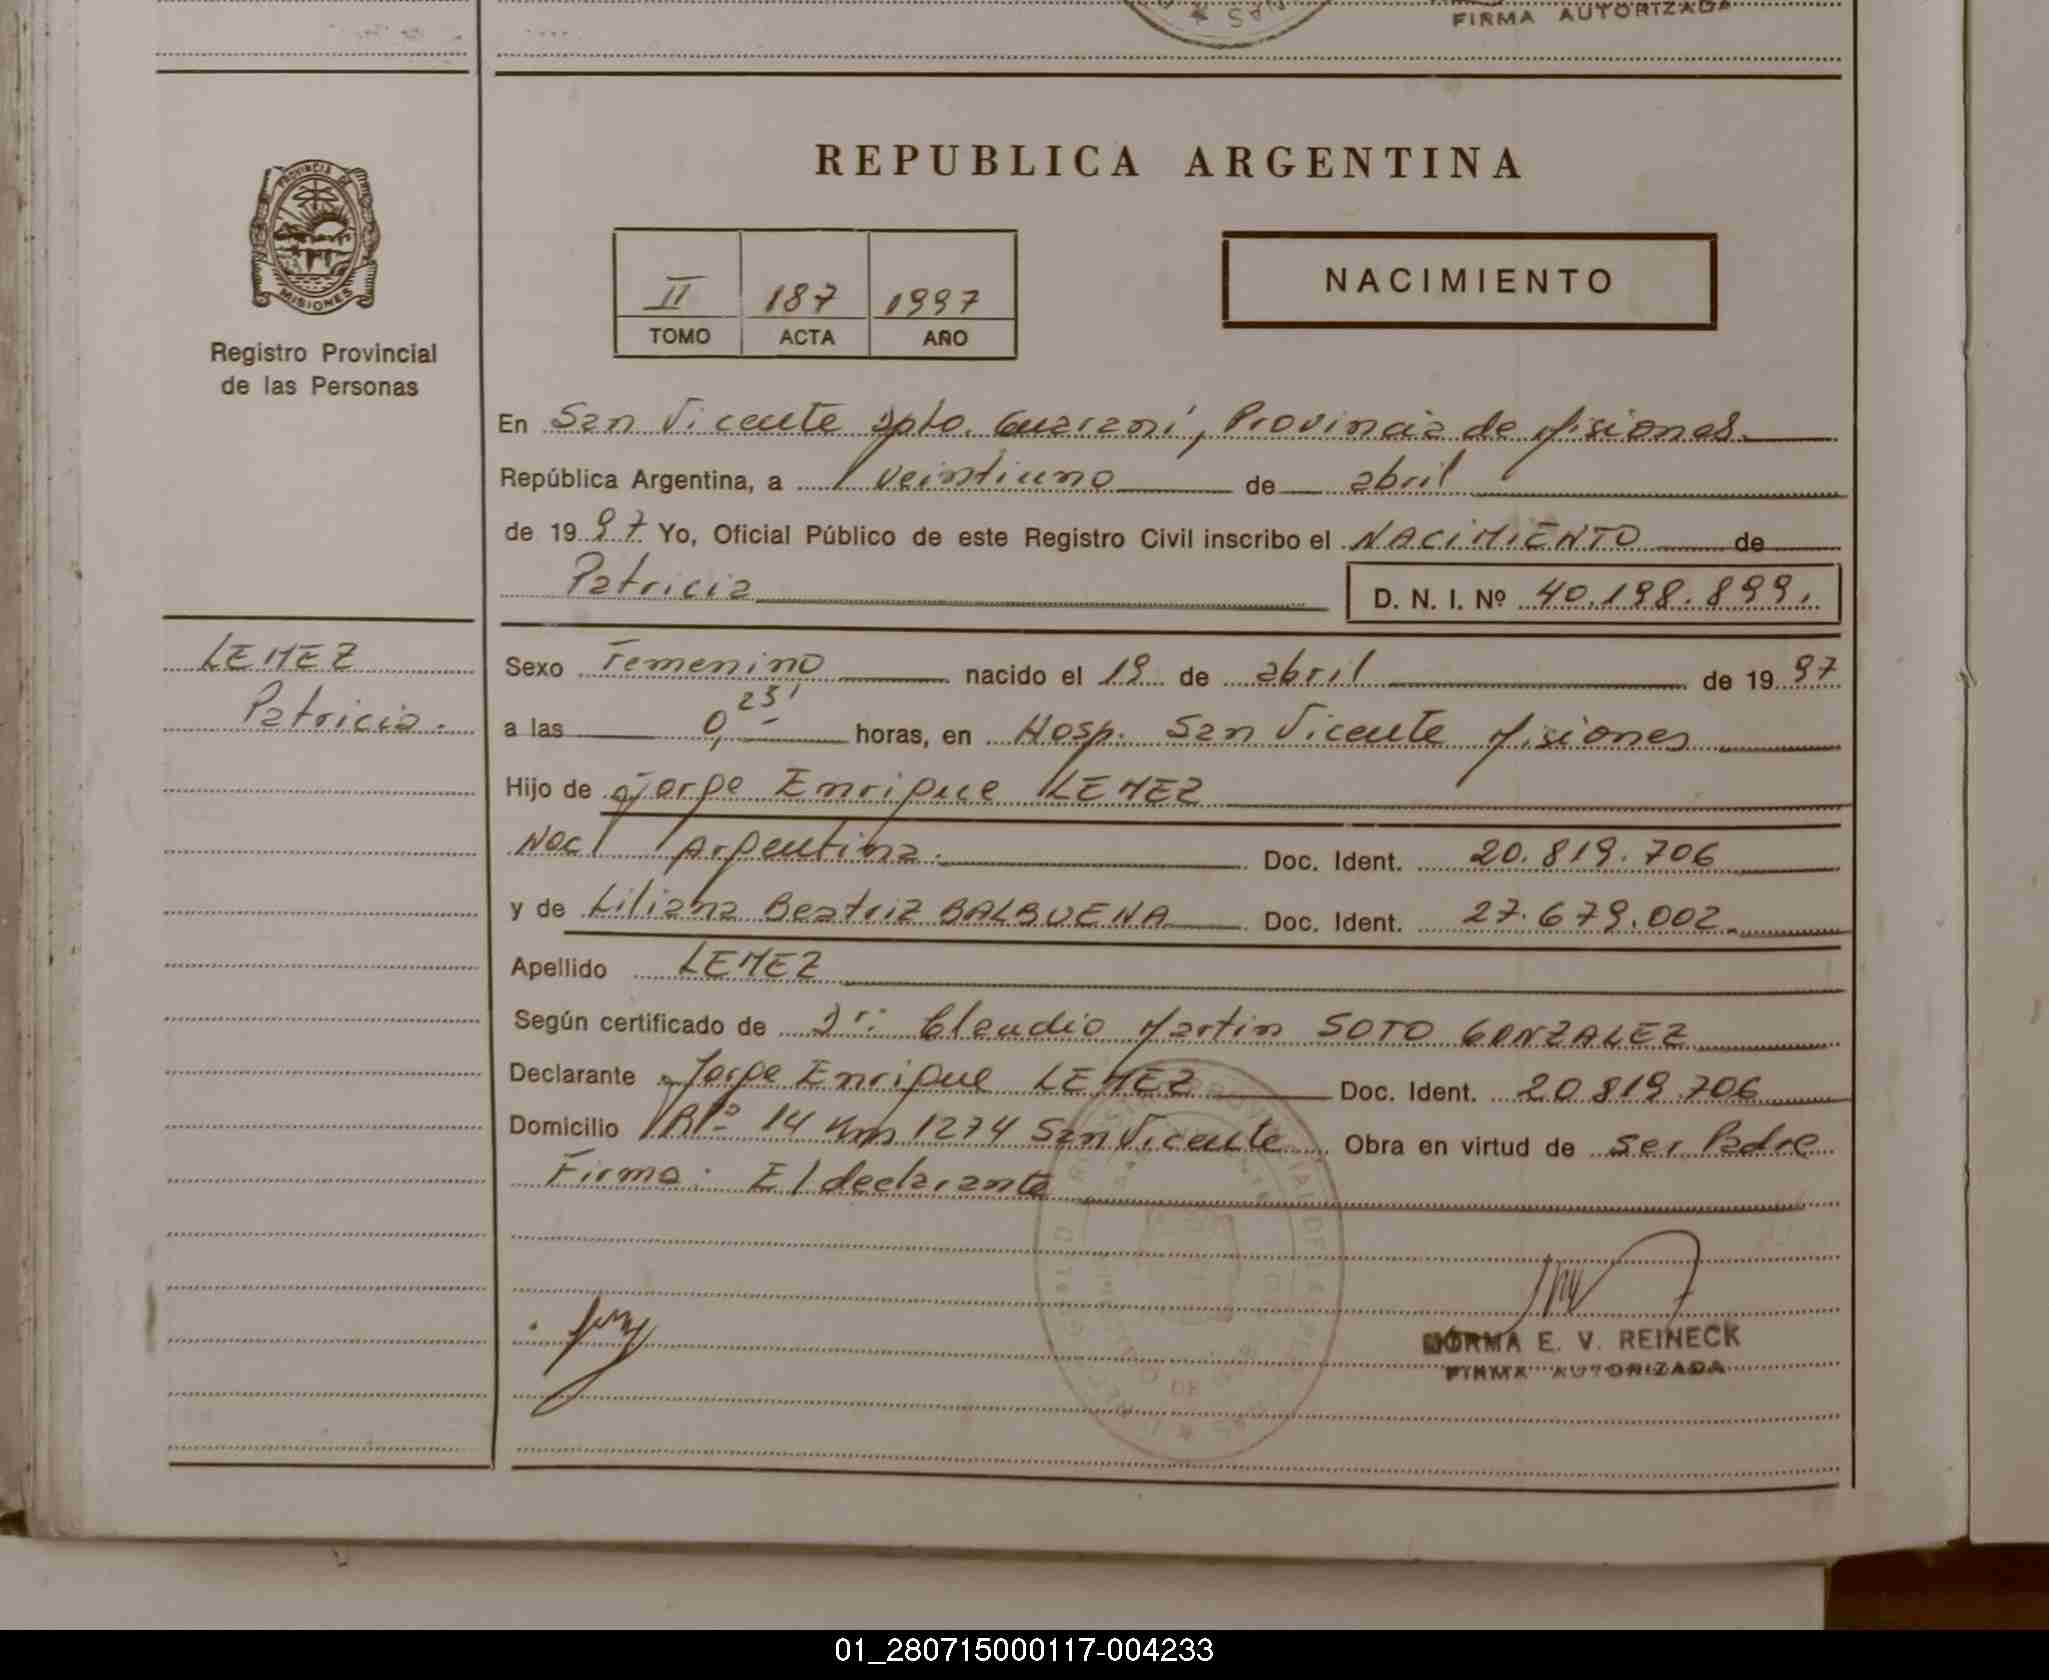 FIRMA AUTORIZADA
REPUBLICA ARGENTINA
PROVINCIA DE
MISIONES
Registro Provincial
de las Personas
II 187 1997
TOMO ACTA AÑO
NACIMIENTO
En San Vicente Dpto. Guaraní, Provincia de Misiones.
República Argentina, a veintiuno de abril
de 1997 Yo, Oficial Público de este Registro Civil inscribo el NACIMIENTO de
Patricia D. N. I. Nº 40.198.899.
LEMEZ
Patricia.
Sexo Femenino nacido el 19 de abril de 1997
a las 0,25' horas, en Hosp. San Vicente Misiones
Hijo de Jorge Enrique LEMEZ
Nac Argentina. Doc. Ident. 20.819.706
y de Liliana Beatriz BALBUENA Doc. Ident. 27.679.002.
Apellido LEMEZ
Según certificado de Dr. Claudio Martin SOTO GONZALEZ
Declarante Jorge Enrique LEMEZ Doc. Ident. 20.819.706
Domicilio 14 Km 1274 San Vicente Obra en virtud de ser Padre
Firma: El declarante
NORMA E. V. REINECK
FIRMA AUTORIZADA
01_280715000117-004233